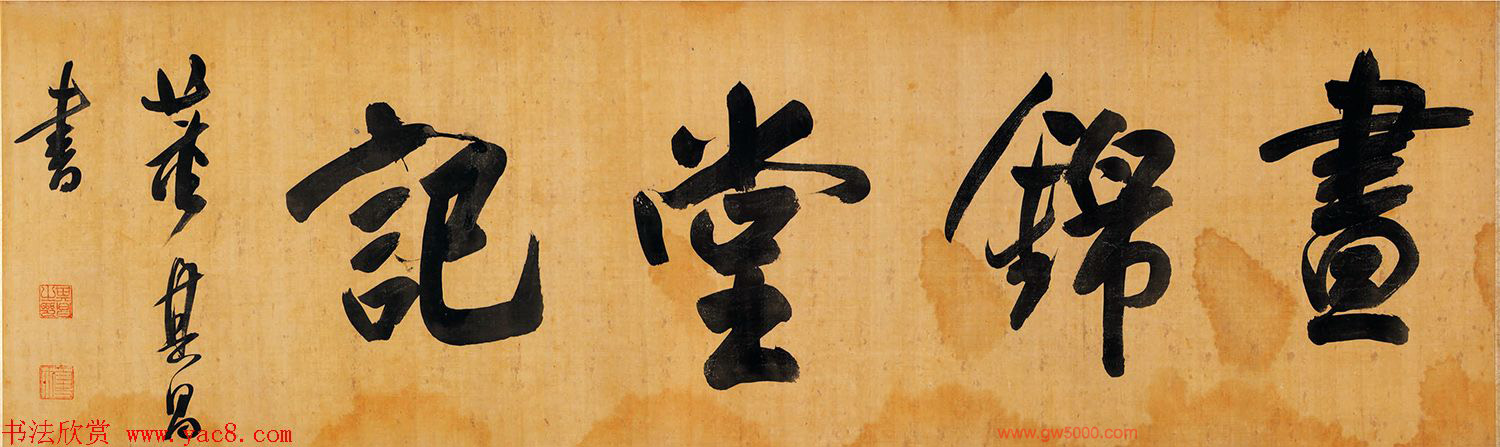 晝錦堂記
董其昌
書
書法欣賞 www.yac8.com
www.gw5000.com